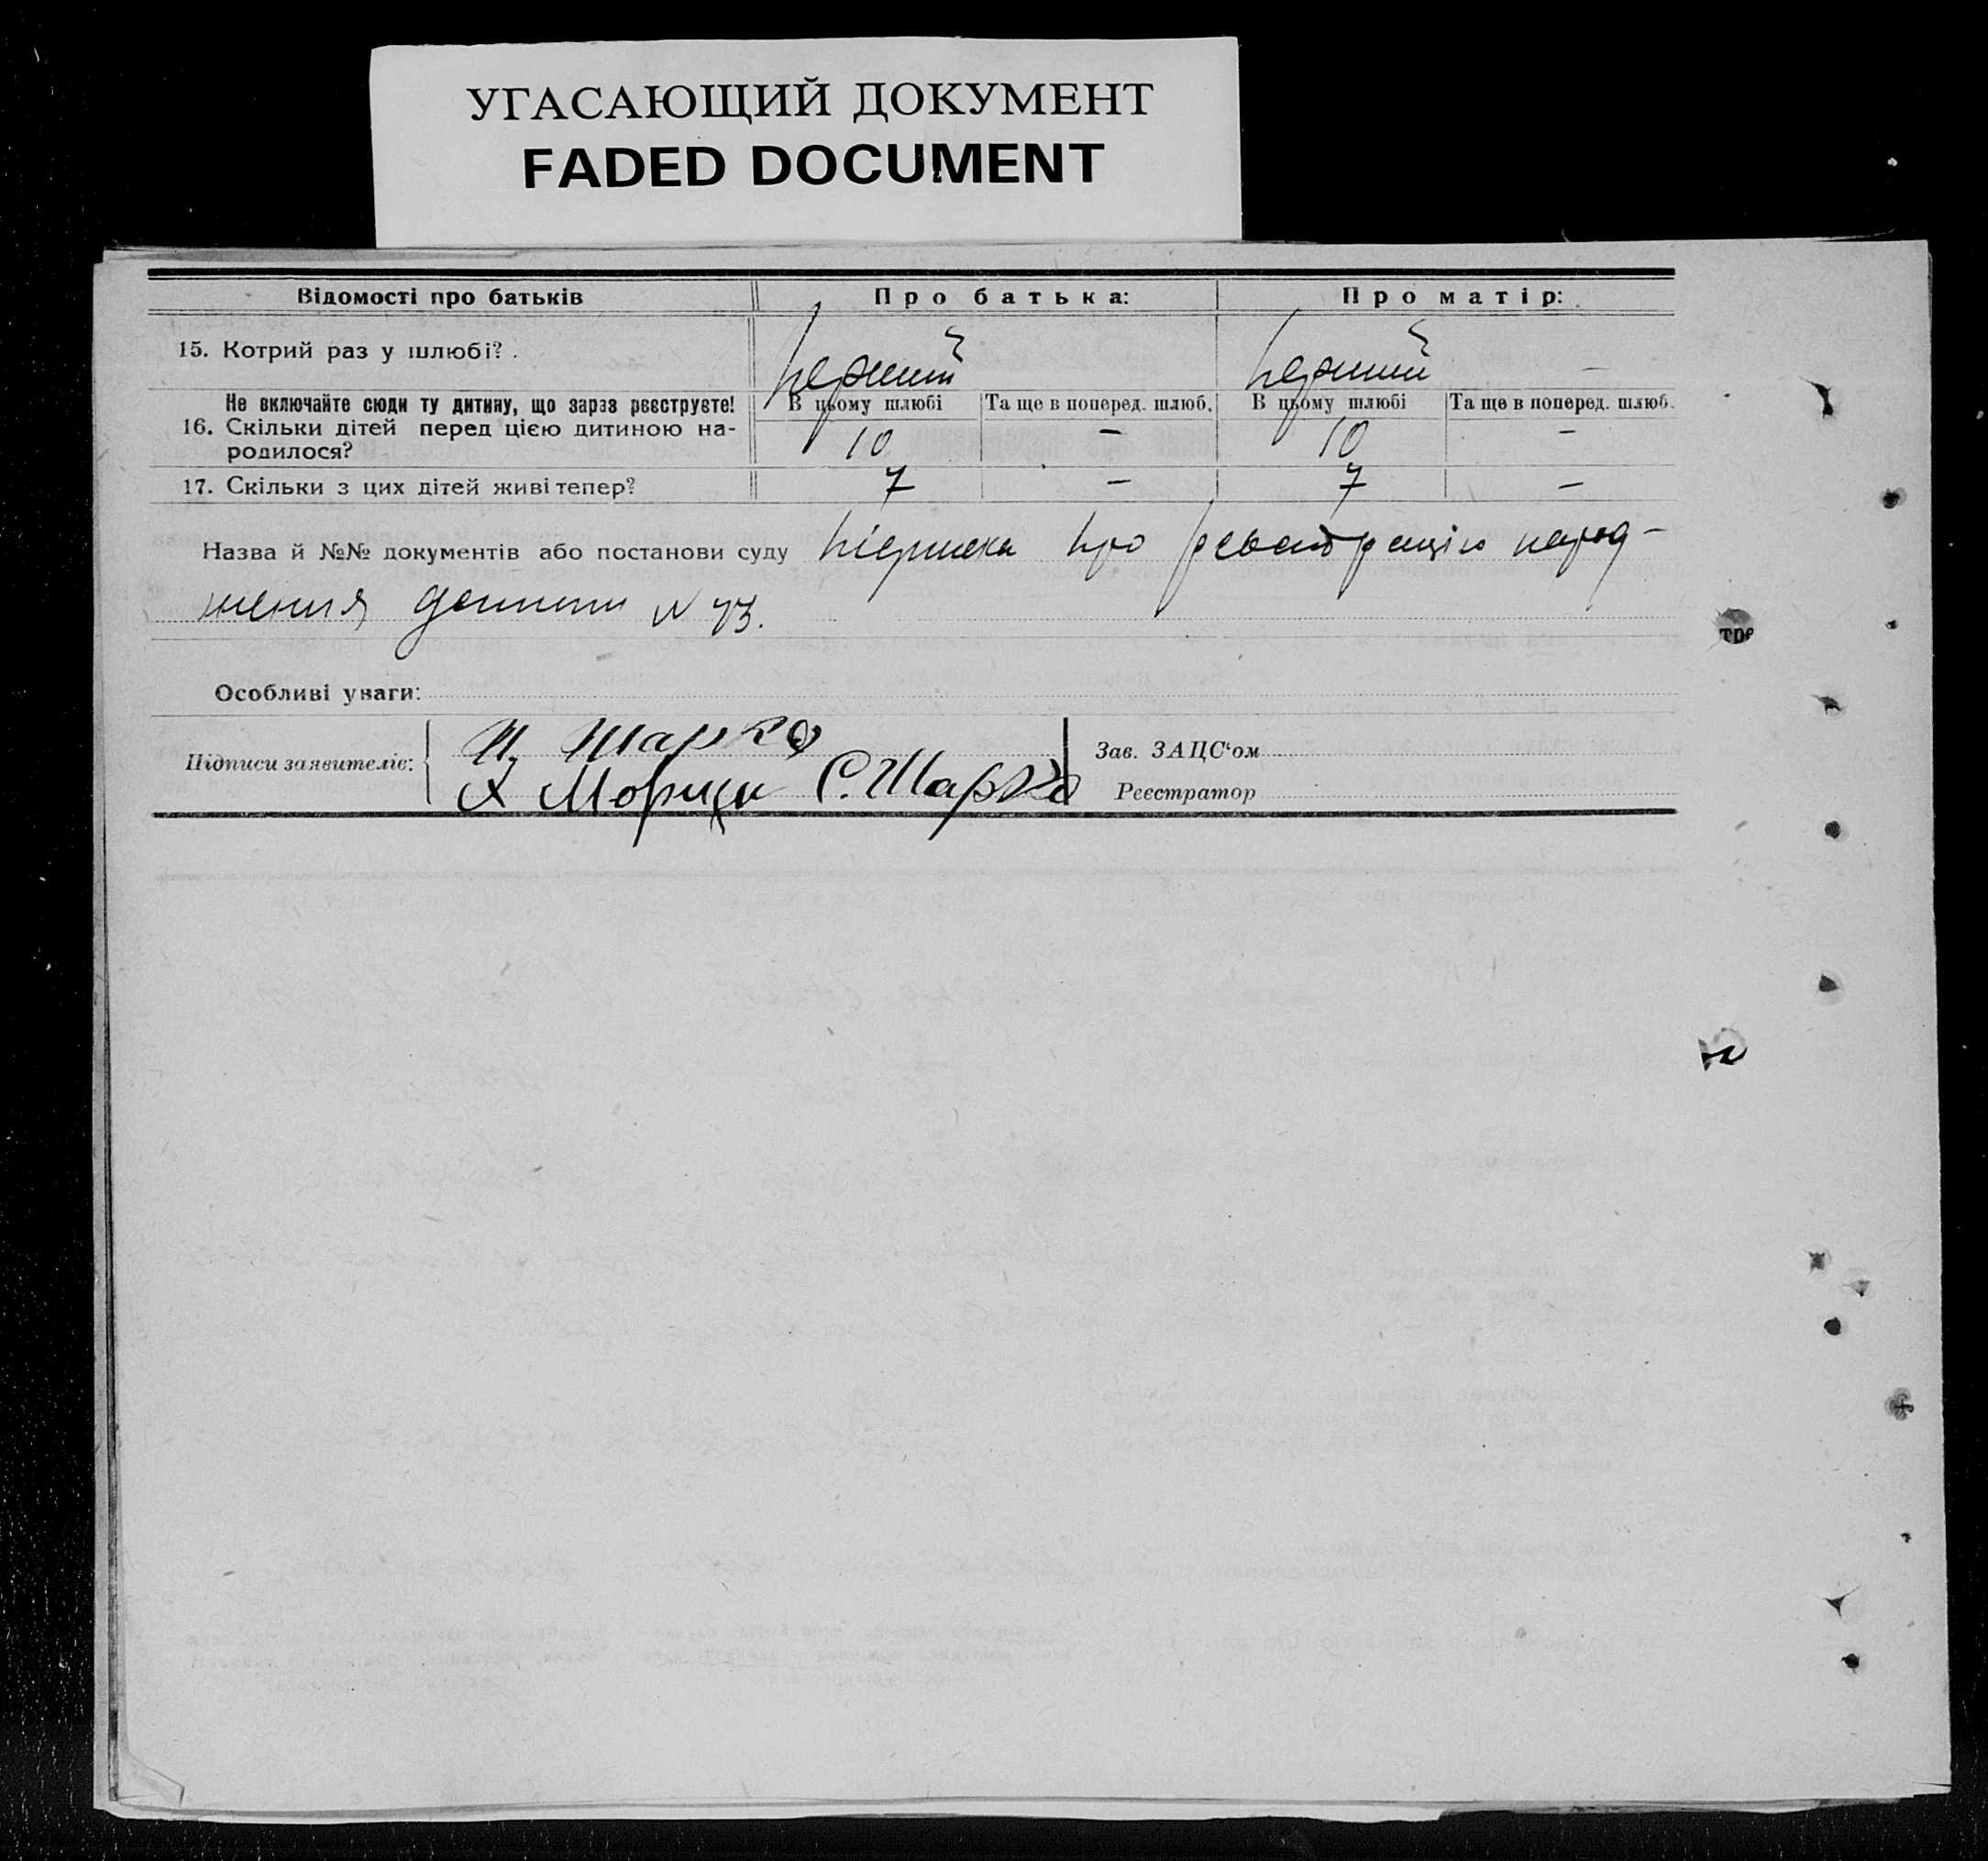 УГАСАЮЩИЙ ДОКУМЕНТ
FADED DOCUMENT
Відомості про батьків Про батька: Про матір:
15. Котрий раз у шлюбі? . Перший Перший
Не включайте сюди ту дитину, що зараз реєструєте! В цьому шлюбі Та ще в поперед. шлюб. В цьому шлюбі Та ще в поперед. шлюб.
16. Скільки дітей перед цією дитиною на-
родилося? 10 — 10 —
17. Скільки з цих дітей живі тепер? 7 — 7 —
Назва й №№ документів або постанови суду про народ-
ження N 73.
Особливі уваги:
Підписи заявителів: Шарко Зав. ЗАЦС'ом
С. Шарко Реєстратор